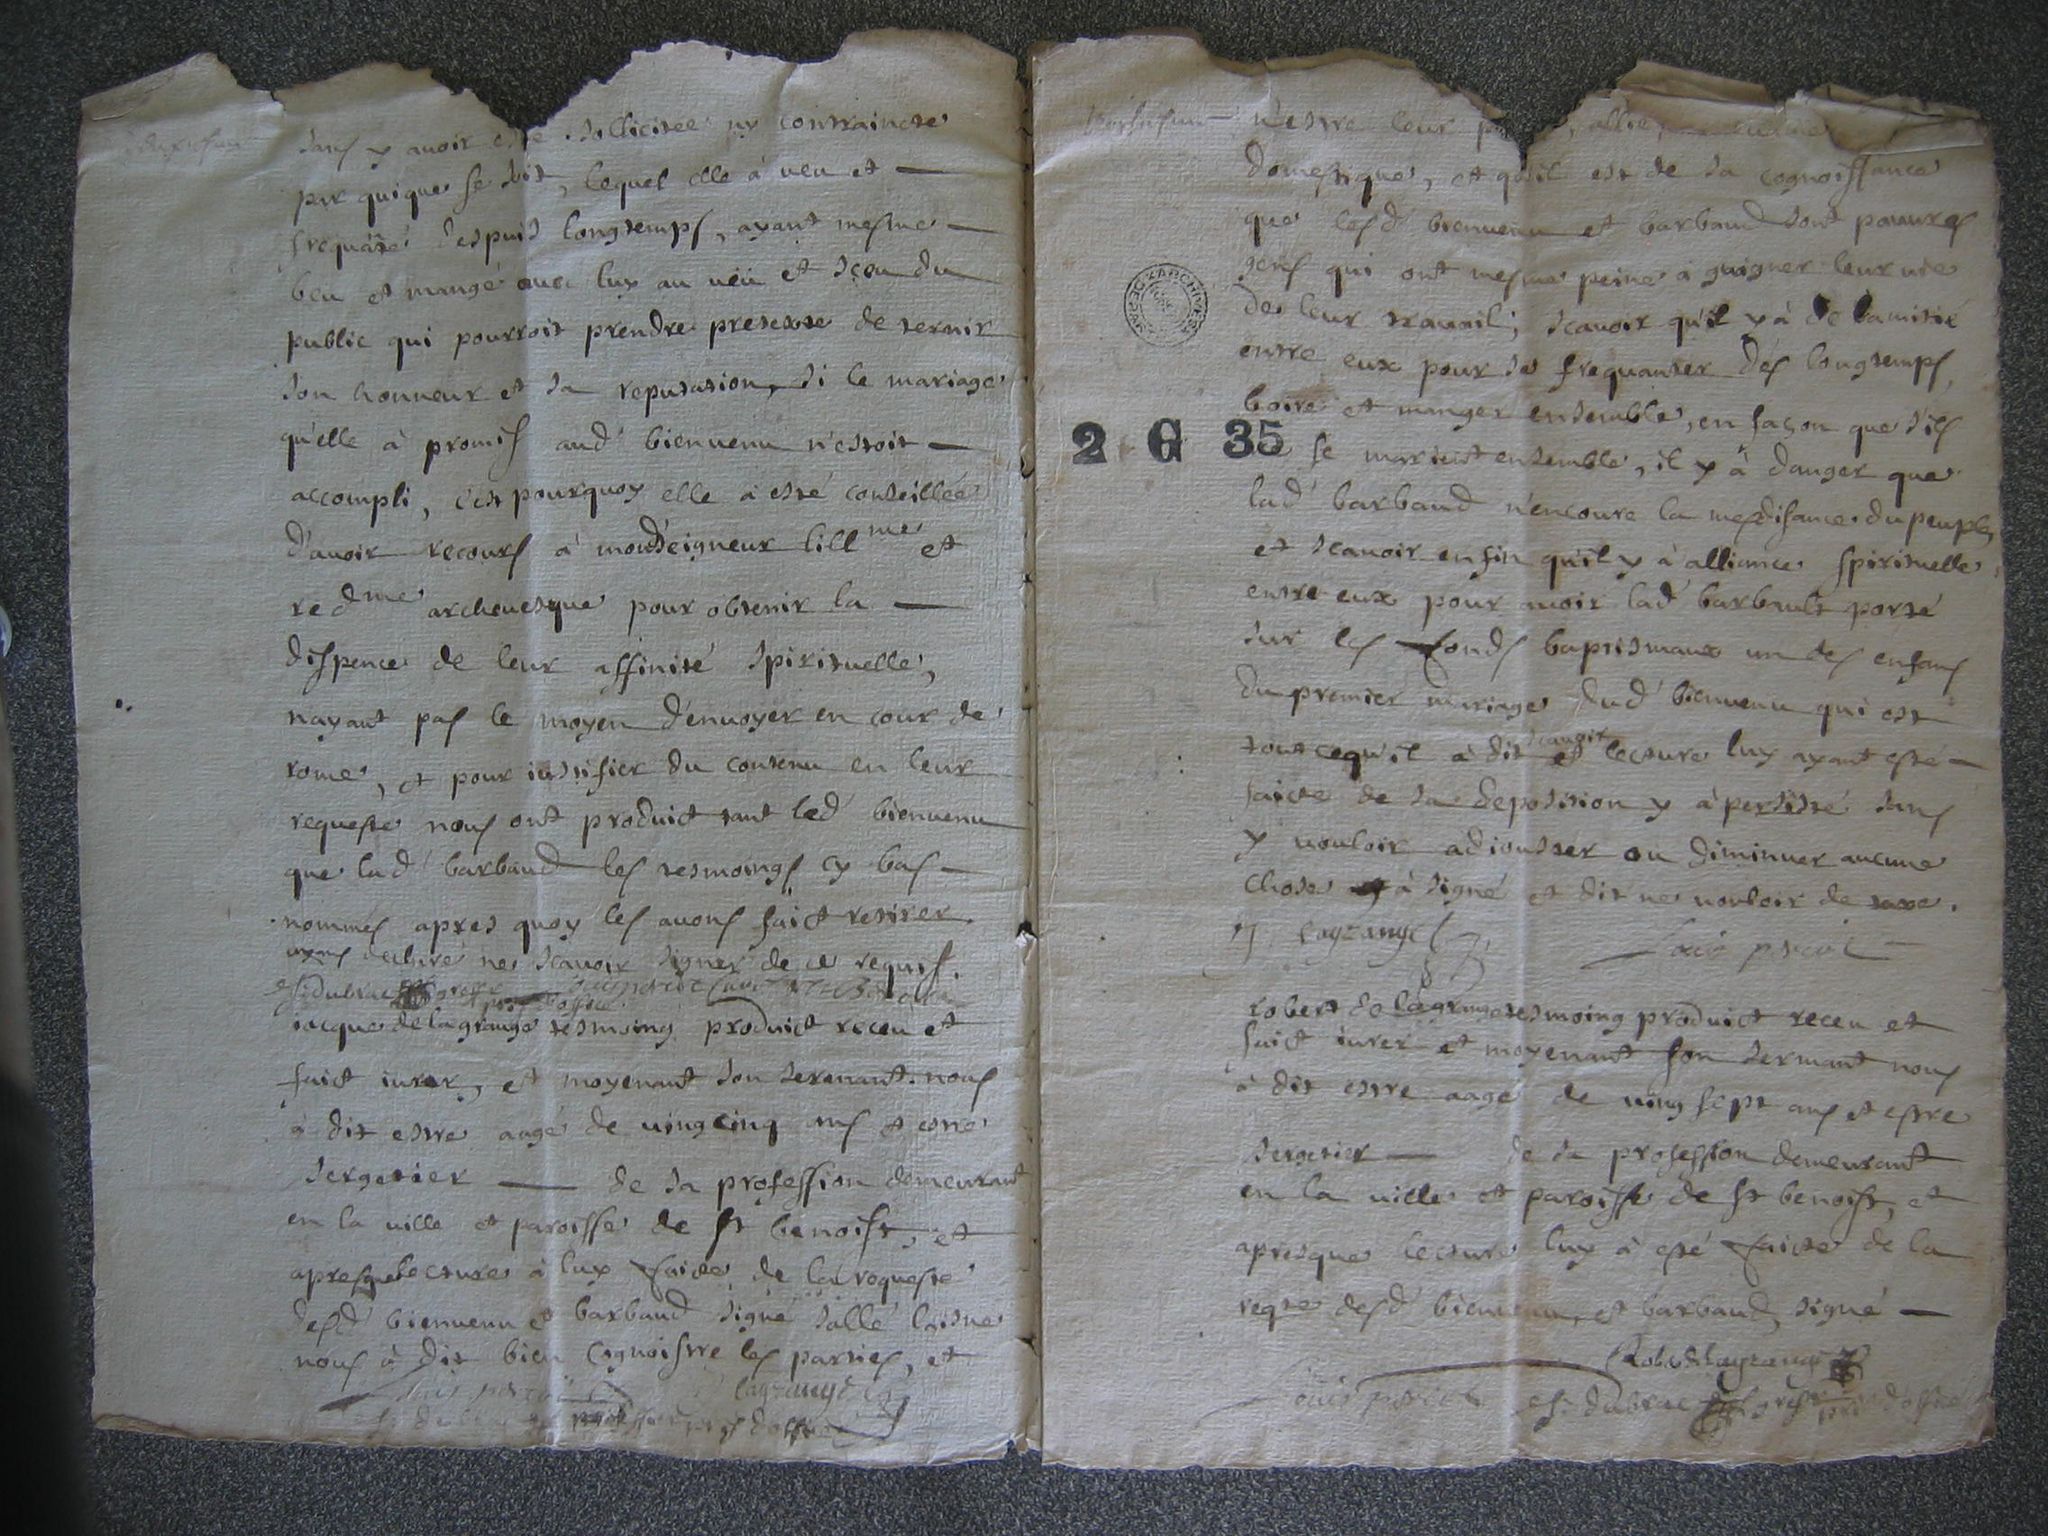 sans y avoir esté sollicitee ny contraincte
par quique se soit, lequel elle à veu et —
frequãté despuis longtemps, ayant mesme —
beu et mangé avec luy au veu et sceu du
public qui pourroit prendre pretexte de ternir
son honneur et sa reputation, si le mariage
qu'elle à promis aud' bienvenu n'estoit —
accompli, c'est pourquoy elle à esté conseillée
d'avoir recours à monseigneur lill me et
red me archevesque pour obtenir la —
dispence de leur affinité spirituelle,
nayant pas le moyen d'envoyer en cour de
rome, et pour iustifier du contenu en leur
requeste nous ont produict tant led' bienvenu
que lad' barbaud les tesmoings cy bas —
nommés apres quoy les avons faict retirer
ayans declaré ne scavoir signer de ce requis.
iacque de lagrange tesmoing produict receu et
faict iurer, et moyenant son serment nous
à dit estre aagé de vingcinq ans et estre
sergetier — de sa profession demeurant
en la ville et paroisse de st benoist, et
apresque lecture à luy faicte de la requeste
desd' bienvenu et barbaud signé sallé laisne
nous à dit bien cognoistre les parties, et
louis percot lagrange
n'estre leur allié,
domestique, et qu'il est de sa cognoissance
que lesd' bienvenu et barbaud sont pauvres
gens qui ont mesme peine à guaigner leur vie
de leur travail; scavoir qu'il y à de lamitié
entre eux pour se frequanter dés longtemps,
boire et manger ensemble, en façon que s'ils
2 G 35
se marient ensemble, il y à danger que
lad' barbaud n'encoure la mesdisance du peuple,
et scavoir enfin qu'il y à alliance spirituelle
entre eux pour avoir lad' barbault porté
sur les fonds baptismaux un des enfans
du premier mariage dud' bienvenu qui est
tout cequ'il à dit scavoir et lecture luy ayant esté —
faicte de sa deposition y à persisté sans
y vouloir adiouster ou diminuer aucune
chose à signé et dit ne vouloir de taxe.
J lagrange louis percot
robert de lagrange tesmoing produict receu et
faict iurer et moyenant son sermant nous
à dit estre aagé de ving sept ans et estre
sergetier — de sa profession demeurant
en la ville et paroisse de st benoist, et
apresque lecture luy à esté faicte de la
reqte desd' bienvenu et barbaud, signé —
Robert lagrange
louis percot